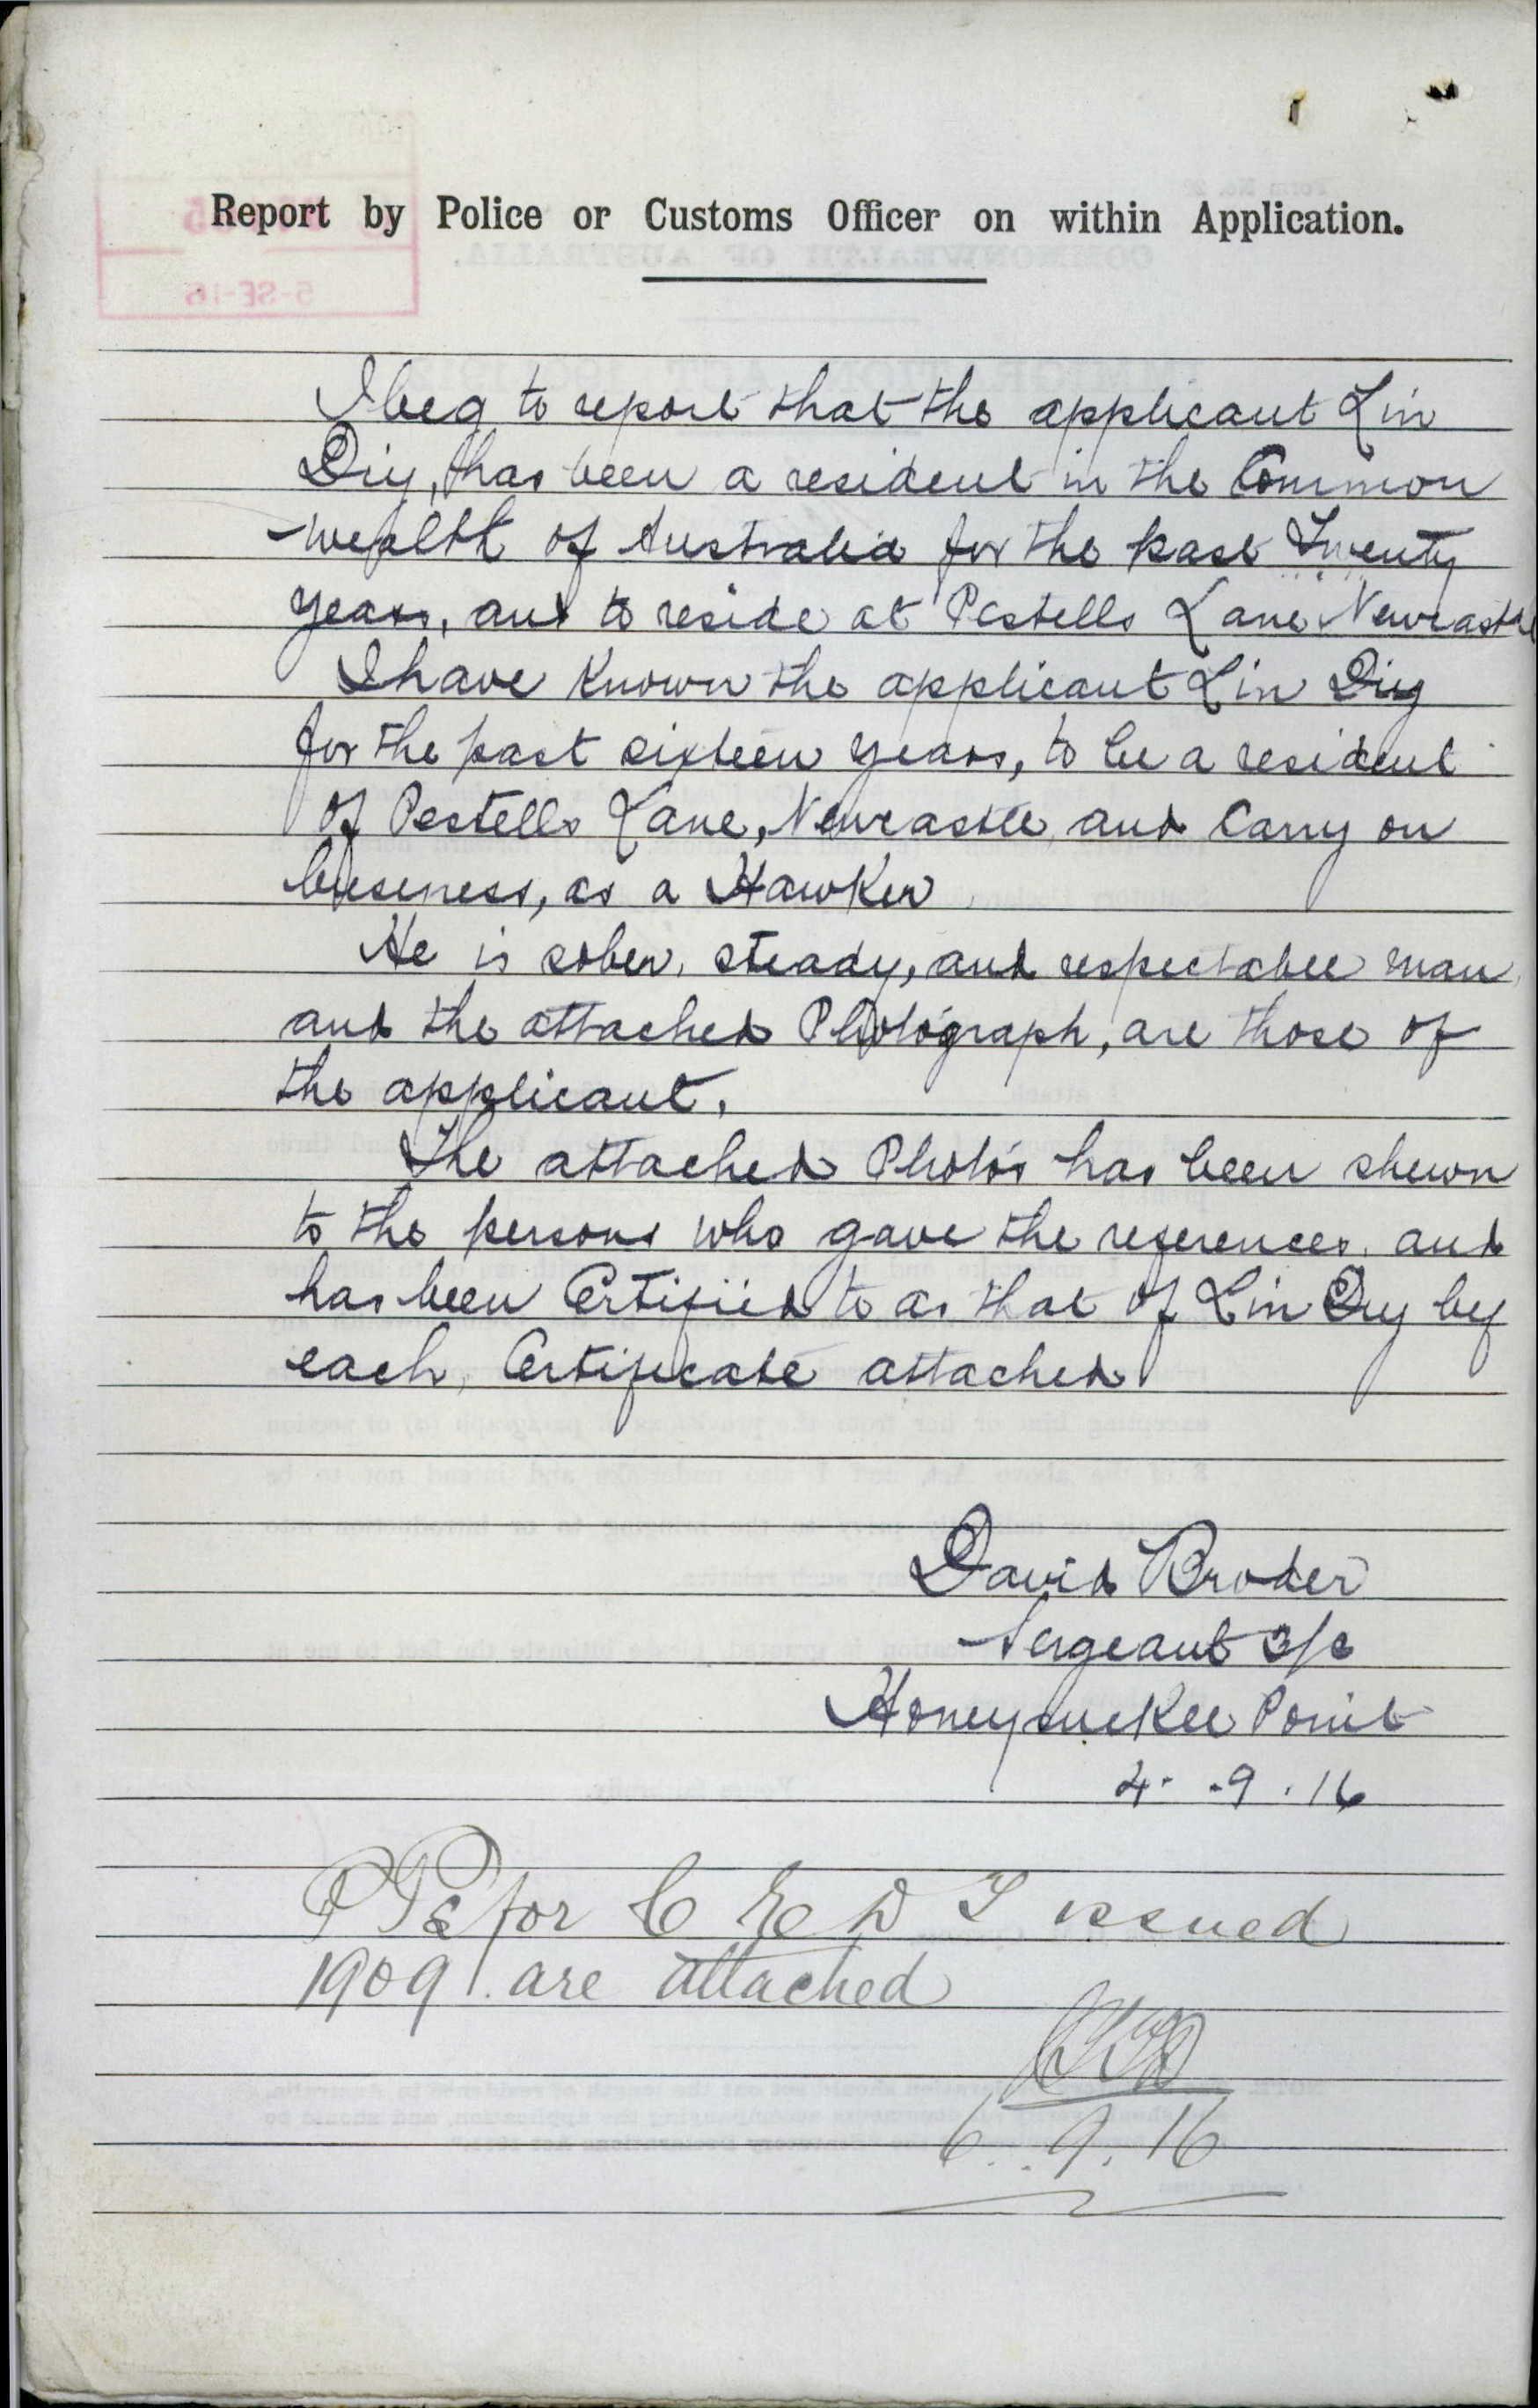 Report by Police or Customs Officer on within Application.
I beg to report that the applicant Lin
Diy, has been a resident in the Common
-wealth of Australia for the past Twenty
years, and to reside at Pestells Lane Newcastle
I have Known the applicant Lin Diy
for the past sixteen years, to be a resident
of Pestells Lane, Newcastle, and Carry on
buseness, as a Hawker
He is sober, steady, and respectable man
and the attached Photograph, are those of
the applicant.
The attached Photo's has been shewn
to the persons who gave the references. and
has been Certified to as that of Lin Diy by
each, Certificate attached
David Broder
Sergeant 3/c
Honeysuckle Point
4. .9 .16
for C E D T issued
1909. are attached
6. 9. 16
5-SE-16
COMMONWEALTH OF AUSTRALIA.